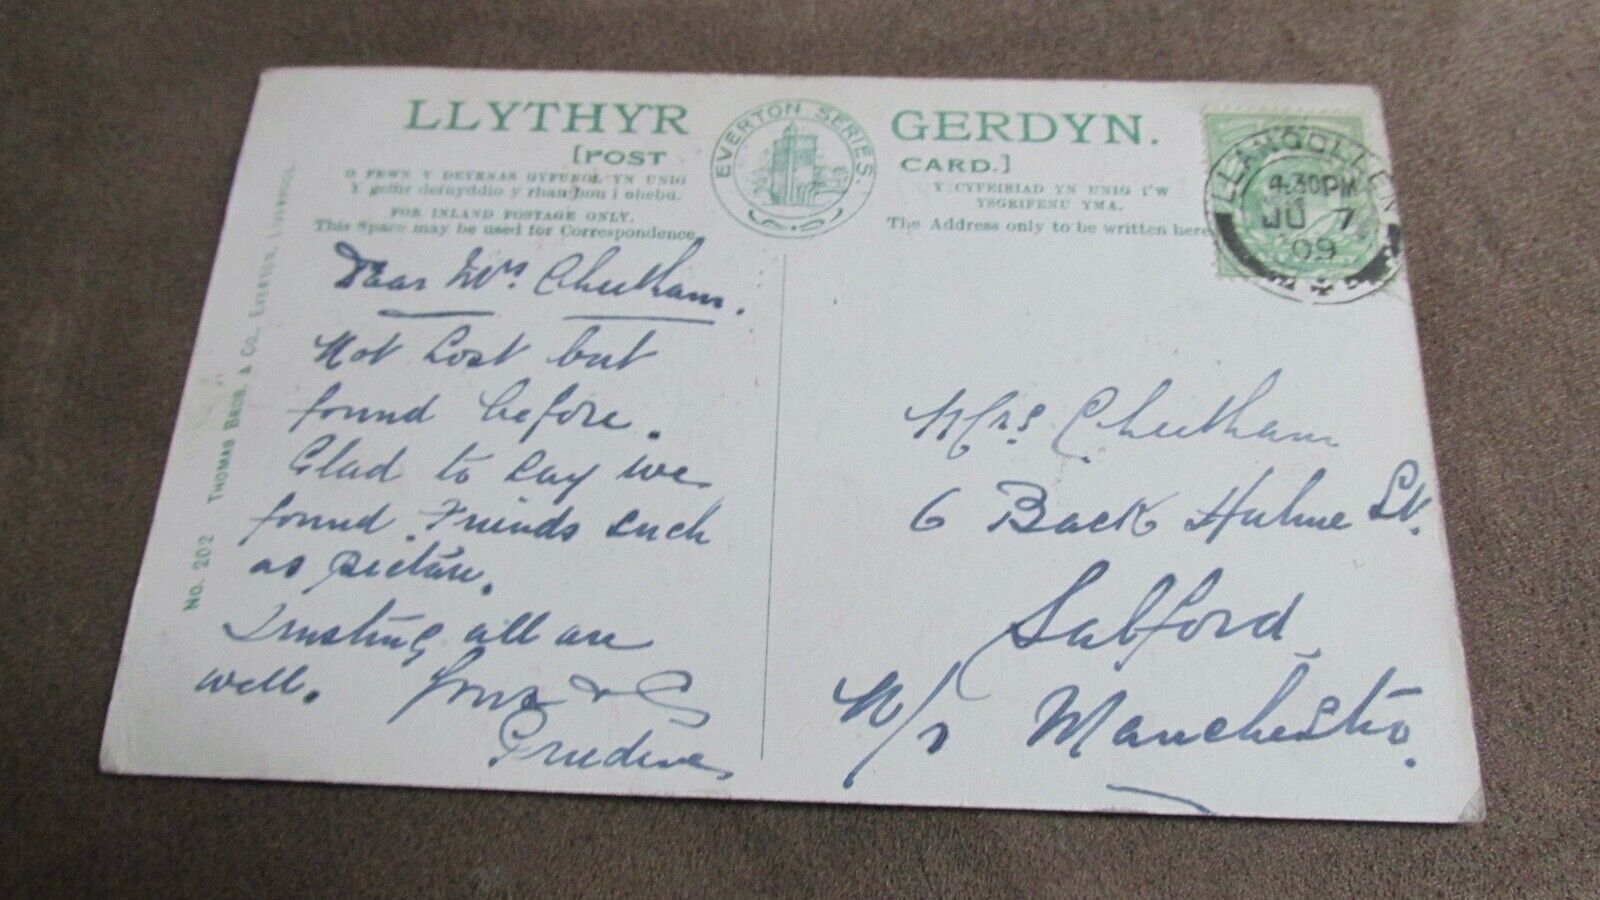 LLYTHYR GERDYN.
[POST CARD.]
EVERTON SERIES.
O FEWN Y DEYRNAS GYFUNOL YN UNIG
Y gellir defnyddio y rhan hon i ohebu.
FOR INLAND POSTAGE ONLY.
This Space may be used for Correspondence
Y CYFEIRIAD YN UNIG I'W
YSGRIFENU YMA.
The Address only to be written here
LLANGOLLEN
4.30PM
JU 7
09
No. 202 THOMAS BROS. & CO., EVERTON, LIVERPOOL.
Dear Mrs Cheetham.
Not Lost but
found before.
Glad to say we
found Friends such
as picture.
Trusting all are
well. Yours &
Mrs Cheetham
6 Back Hulme St.
Salford
N/r Manchester.